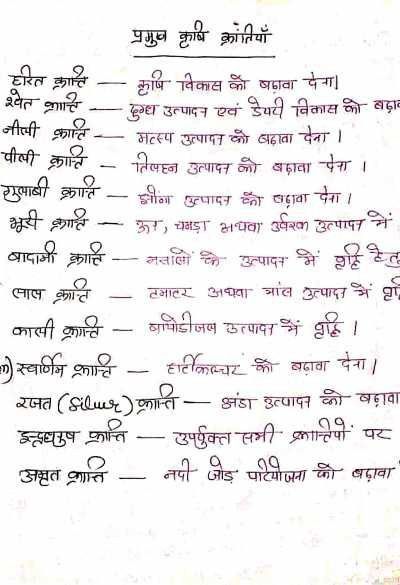 प्रमुख कृषि क्रांतियाँ
हरित क्रान्ति — कृषि विकास को बढ़ावा देना।
श्वेत क्रान्ति — दुग्ध उत्पादन एवं डेयरी विकास को बढ़ाव
नीली क्रान्ति — मत्स्य उत्पादन को बढ़ावा देना ।
पीली क्रान्ति — तिलहन उत्पादन को बढ़ावा देना ।
गुलाबी क्रान्ति — झींगा उत्पादन को बढ़ावा देना ।
भूरी क्रान्ति — ऊन, चमड़ा अथवा उर्वरक उत्पादन में
बादामी क्रान्ति — मसालों के उत्पादन में वृद्धि हेतु
लाल क्रान्ति — टमाटर अथवा मांस उत्पादन में वृद्धि
काली क्रान्ति — बायोडीजल उत्पादन में वृद्धि ।
स्वर्णिम क्रान्ति — हार्टीकल्चर को बढ़ावा देना ।
रजत (Silver) क्रान्ति — अंडा उत्पादन को बढ़ावा
इन्द्रधनुष क्रान्ति — उपर्युक्त सभी क्रान्तियों पर
अमृत क्रान्ति — नदी जोड़ परियोजना को बढ़ावा